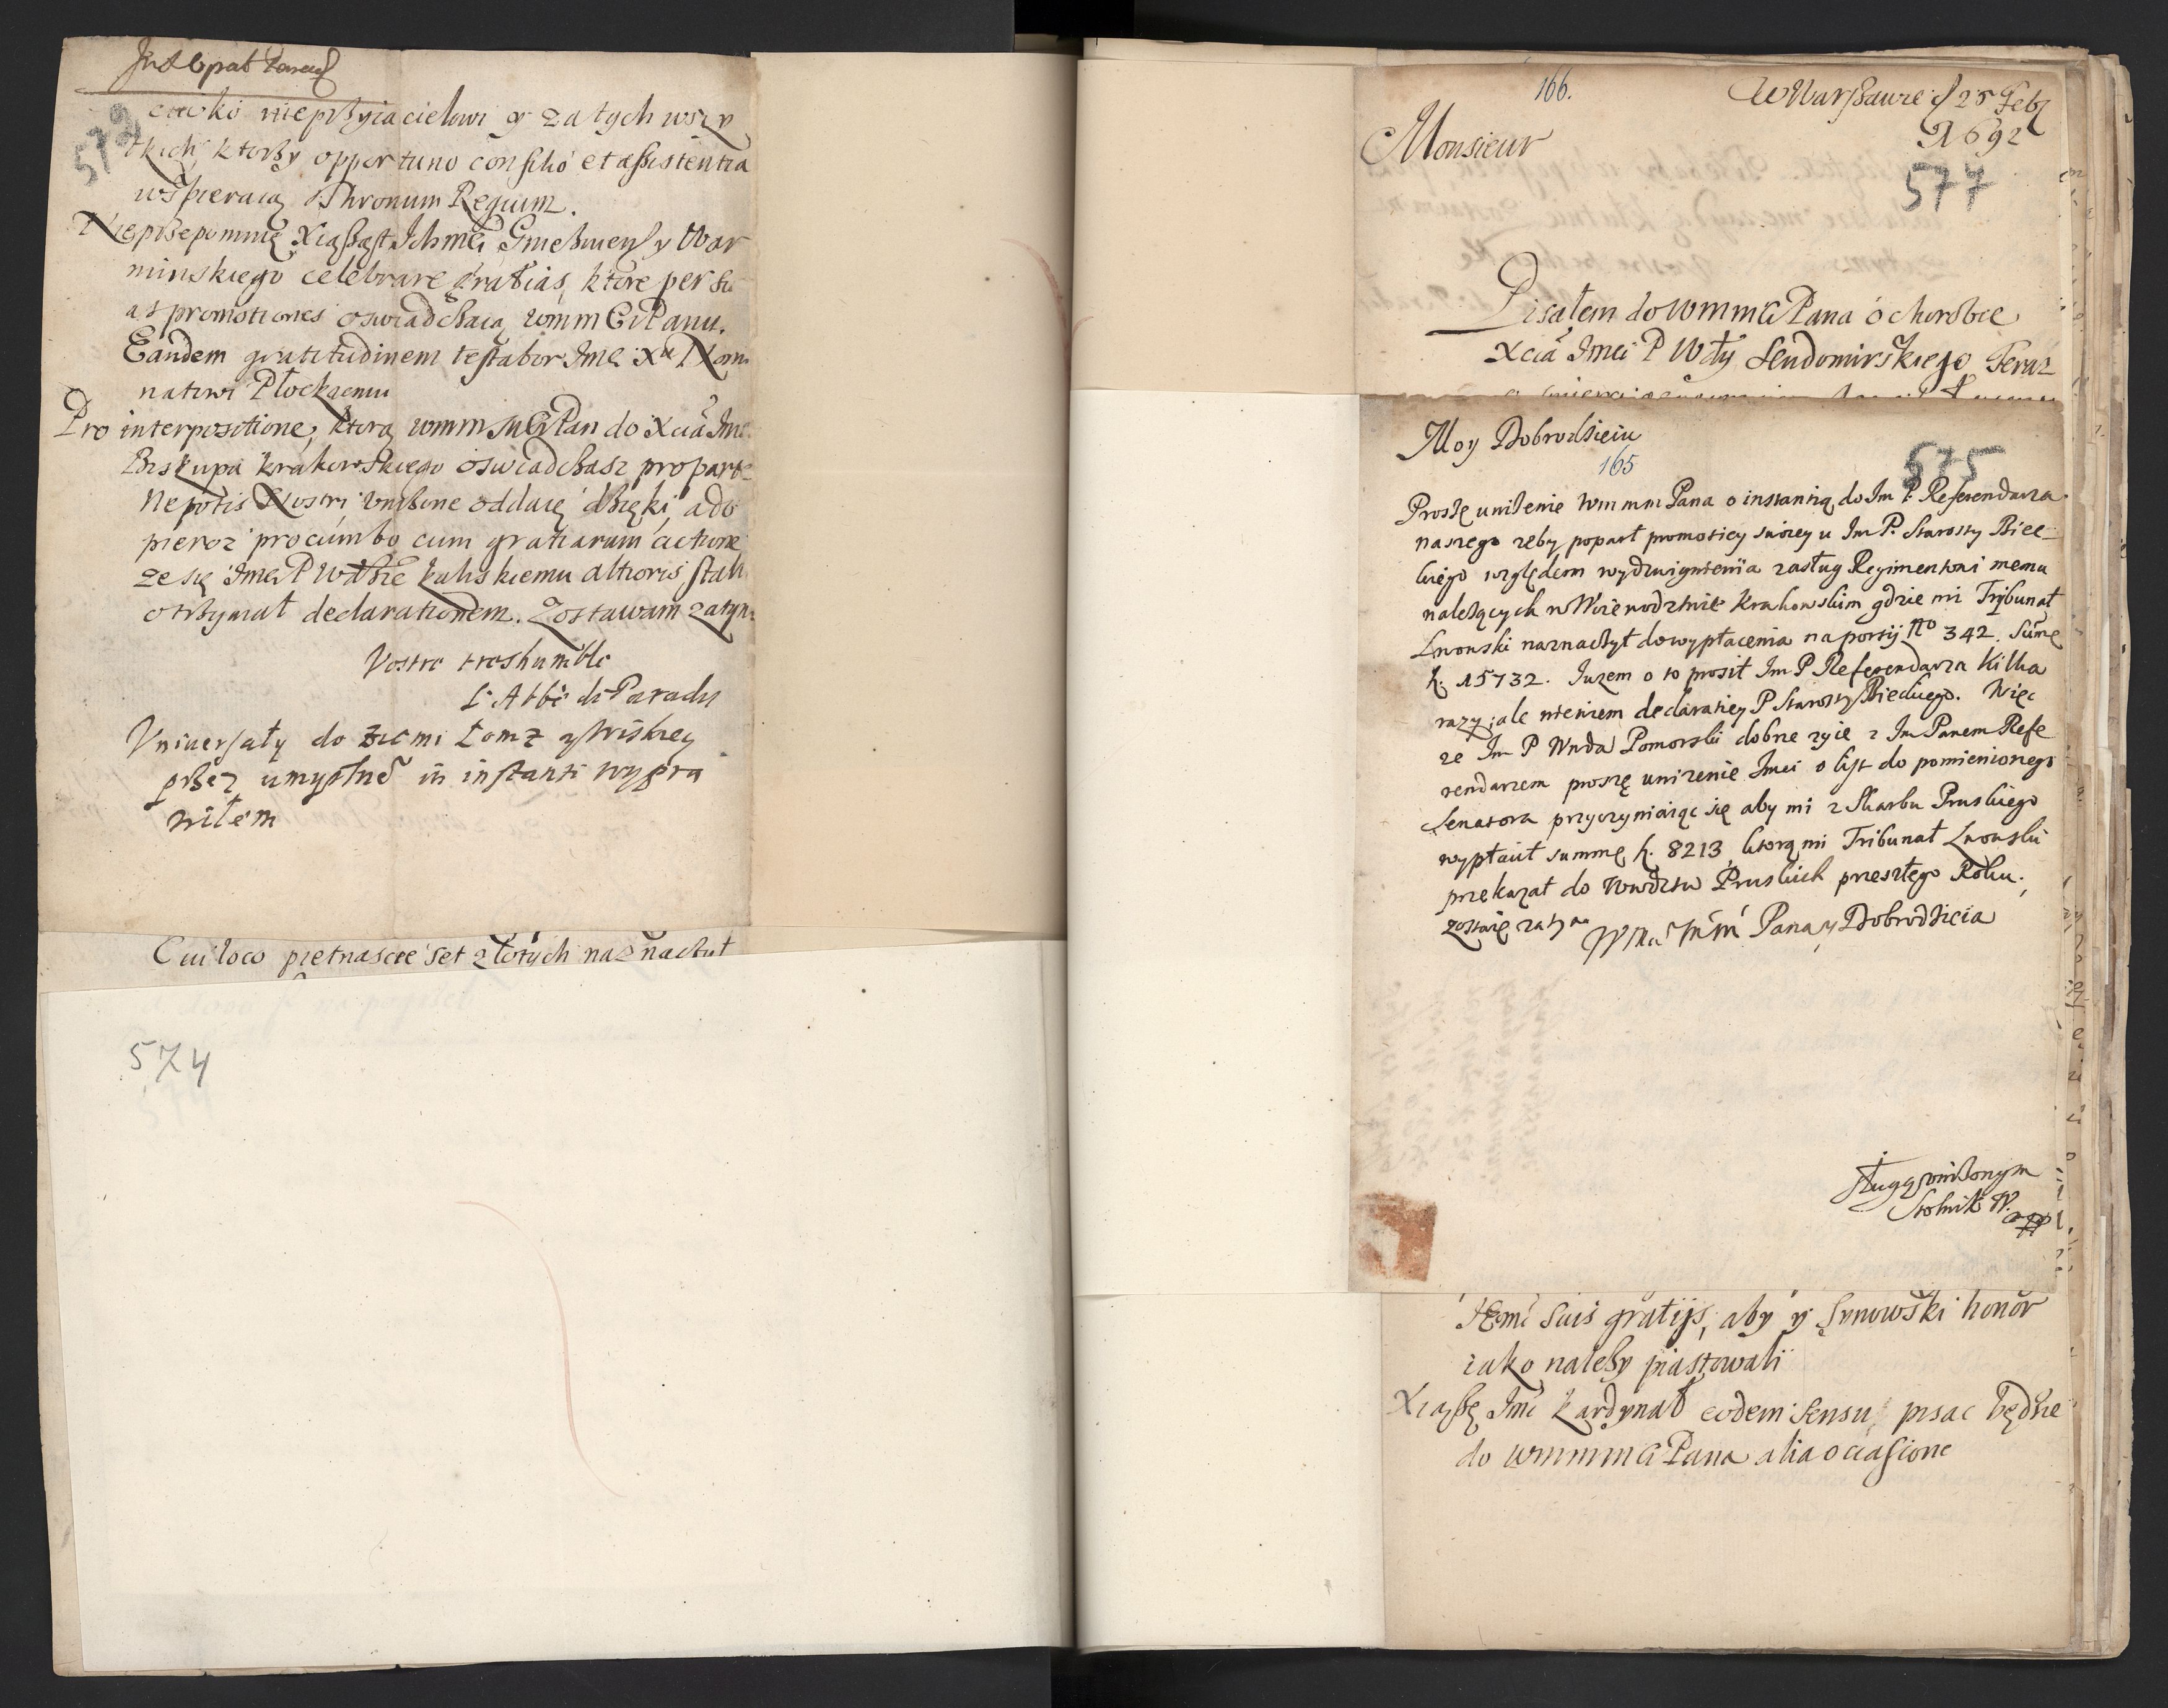 572
ciwko nieprzyiacielowi y za tych wszy
tkich, ktorzy opportuno consilio et assistentia
wspieraią Thronum Regium.
Nieprzepomnię Xiążąt Ichmci Gnieznień y War
minskiego celebrare gratias, ktore per su
as promotiones oswiadczaią wmm Panu.
Eandem gratitudinem testabor Imci Xu Nomi
natowi Płockiemu
Pro interpositione, ktorą wmm Pan do Xcia Imci
Biskupa krakowskiego oswiadczasz pro parte
Nepotis Nostri unizone oddaię dzięki, a do
pieroz procumbo cum gratiarum actione
ze się Imci P Wdzie kaliskiemu altioris stalli
otrzymał declarationem. Zostawam zatym
Vostre treshumble
L'Abbé de Paradis
Vniversały do ziemi Łomz y Wiskiey
przez umyslne in instanti wypra
wiłem
Cui loco pietnascie set złotych naznaczył
574
166.
W Warszawie d 25 Feb
1692
Monsieur
577
Pisałem do wmm Pana o chorobie
Xcia Imci P Wdy Sendomirskiego Teraz
Moy Dobrodzieiu
165
575
Proszę unizenie wm mm Pana o instantią do Im P. Referendarza
naszego zeby poparł promotiey swoiey u Im P. Starosty Biec-
kiego względem wydzwignienia zasług Regimentowi memu
nalezących w Woiewodztwie Krakowskim gdzie mi Trybunał
Lwowski naznaczył do wypłacenia na porty No 342. Sumę
h. 15732. Iuzem o to prosił Im P Referendarza kilka
razy; ale niewiem declaratiey P Starosty Bieckiego. Więc
ze Im P Wnda Pomorski dobrze zyie z Im Panem Refe
rendarzem proszę unizenie Imci o list do pomienionego
Senatora przyczyniaiąc się aby mi z Skarbu Pruskiego
wypłacił summę h. 8213 ktorą mi Tribunał Lwowski
przekazał do Wwdztw Pruskich przeszłego Roku.
Zostaię zatym
Pana y Dobrodzieia
sługą unizonym
Stolnik W.
suis gratijs, aby y synowski honor
iako nalezy piastowali
Xiążę Imć kardynał eodem sensu pisac będzie
do wmmm Pana alia occasione